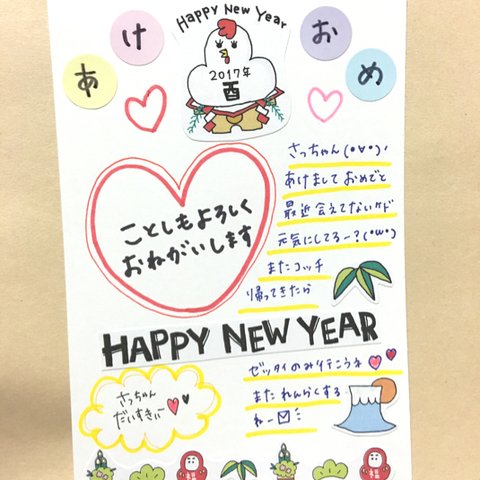 HAPPY NEW YEAR
あけおめ
2017年
酉
さっちゃん(•∀•)ﾉ
あけましておめでと
最近会えてないケド
元気にしてるー?(•ω•)
またコッチ
帰ってきたら
ことしもよろしく
おねがいします
HAPPY NEW YEAR
ゼッタイのみ行こうネ
またれんらくする
ねー
さっちゃん
だいすきぃー